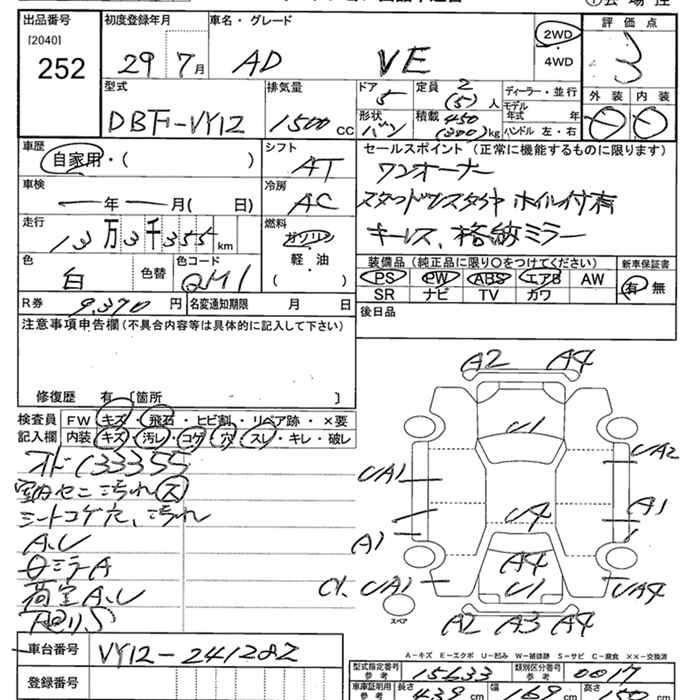 出品番号 初度登録年月 車名・グレード 評価点
[2040] 252 29 7月 AD VE 2WD 4WD 3
型式 排気量 ドア 5 定員 2 (5)人 ディーラー・並行 外装 内装
DBF-VY12 1500 CC 形状 バン 積載 450 (300)kg モデル年式 年 ハンドル 左・右
車歴 シフト セールスポイント(正常に機能するものに限ります)
自家用・( ) AT ワンオーナー
車検 冷房
年 月( 日) AC ホイル付有
走行 燃料 キーレス、格納ミラー
13万3千355km ガソリン
軽・油
( )
色 色替 色コード 装備品(純正品に限り○をつけてください) 新車保証書
白 QM1 PS PW ABS エアB AW 有 無
SR ナビ TV カワ
R券 9,370円 名変通知期限 月 日 後日品
注意事項申告欄(不具合内容等は具体的に記入して下さい)
修復歴 有 [箇所 ]
検査員 FW キズ・飛石・ヒビ割・リペア跡・×要
記入欄 内装 キズ・汚レ・コゲ・穴・スレ・キレ・破レ
133355
汚れ ス
シートコゲ穴、汚れ
A.U
ミラA
荷室A.U
A2 A4
U1
UA1 UA2
U4 A1
A1 A4
UA1 U1 UA4
スペア
A2 A3 A4
A-キズ E-エクボ U-凹み W-補修跡 S-サビ C-腐食 ××-交換済
車台番号 VY12-241282
型式指定番号 参考 15633 類別区分番号 参考 0017
登録番号
車庫証明用 参考 長さ 439 cm 幅 169 cm 高さ 150 cm